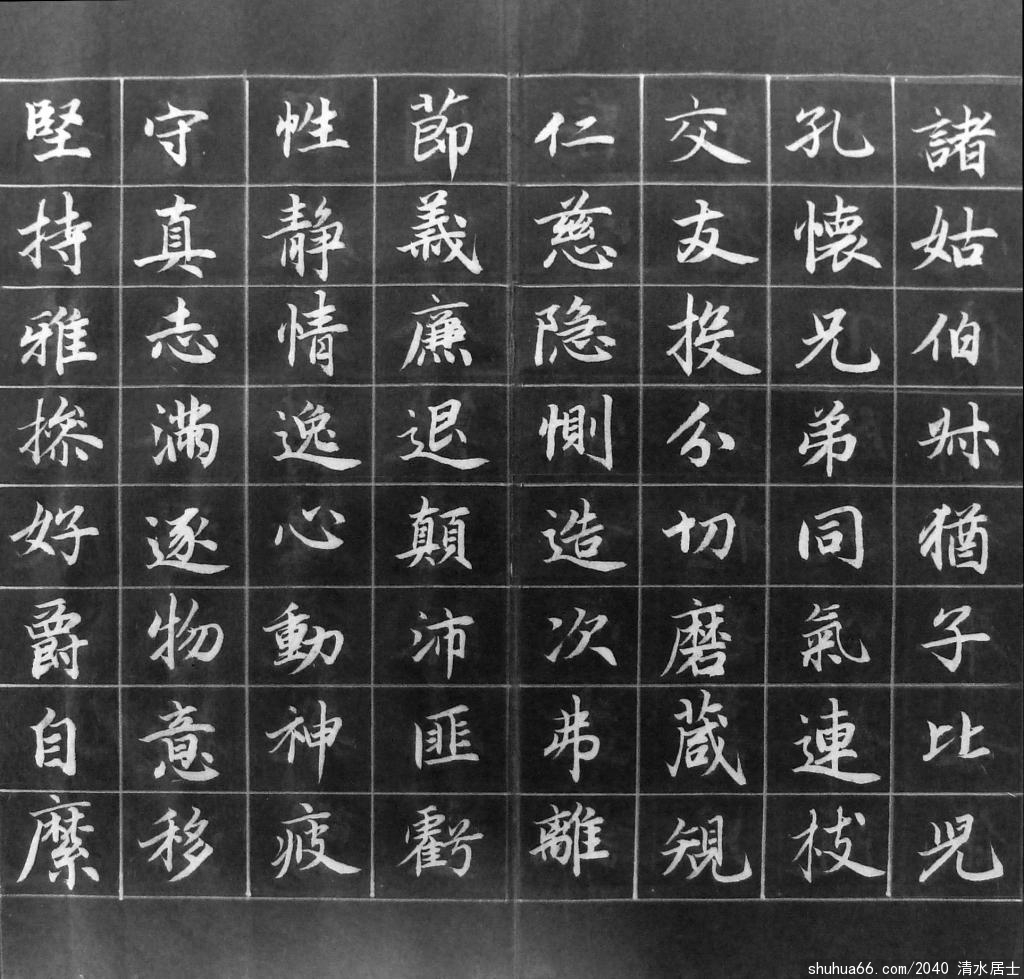 諸姑伯叔猶子比兒
孔懷兄弟同氣連枝
交友投分切磨箴規
仁慈隐惻造次弗離
節義廉退顛沛匪虧
性静情逸心動神疲
守真志滿逐物意移
堅持雅操好爵自縻
shuhua66.com/2040 清水居士